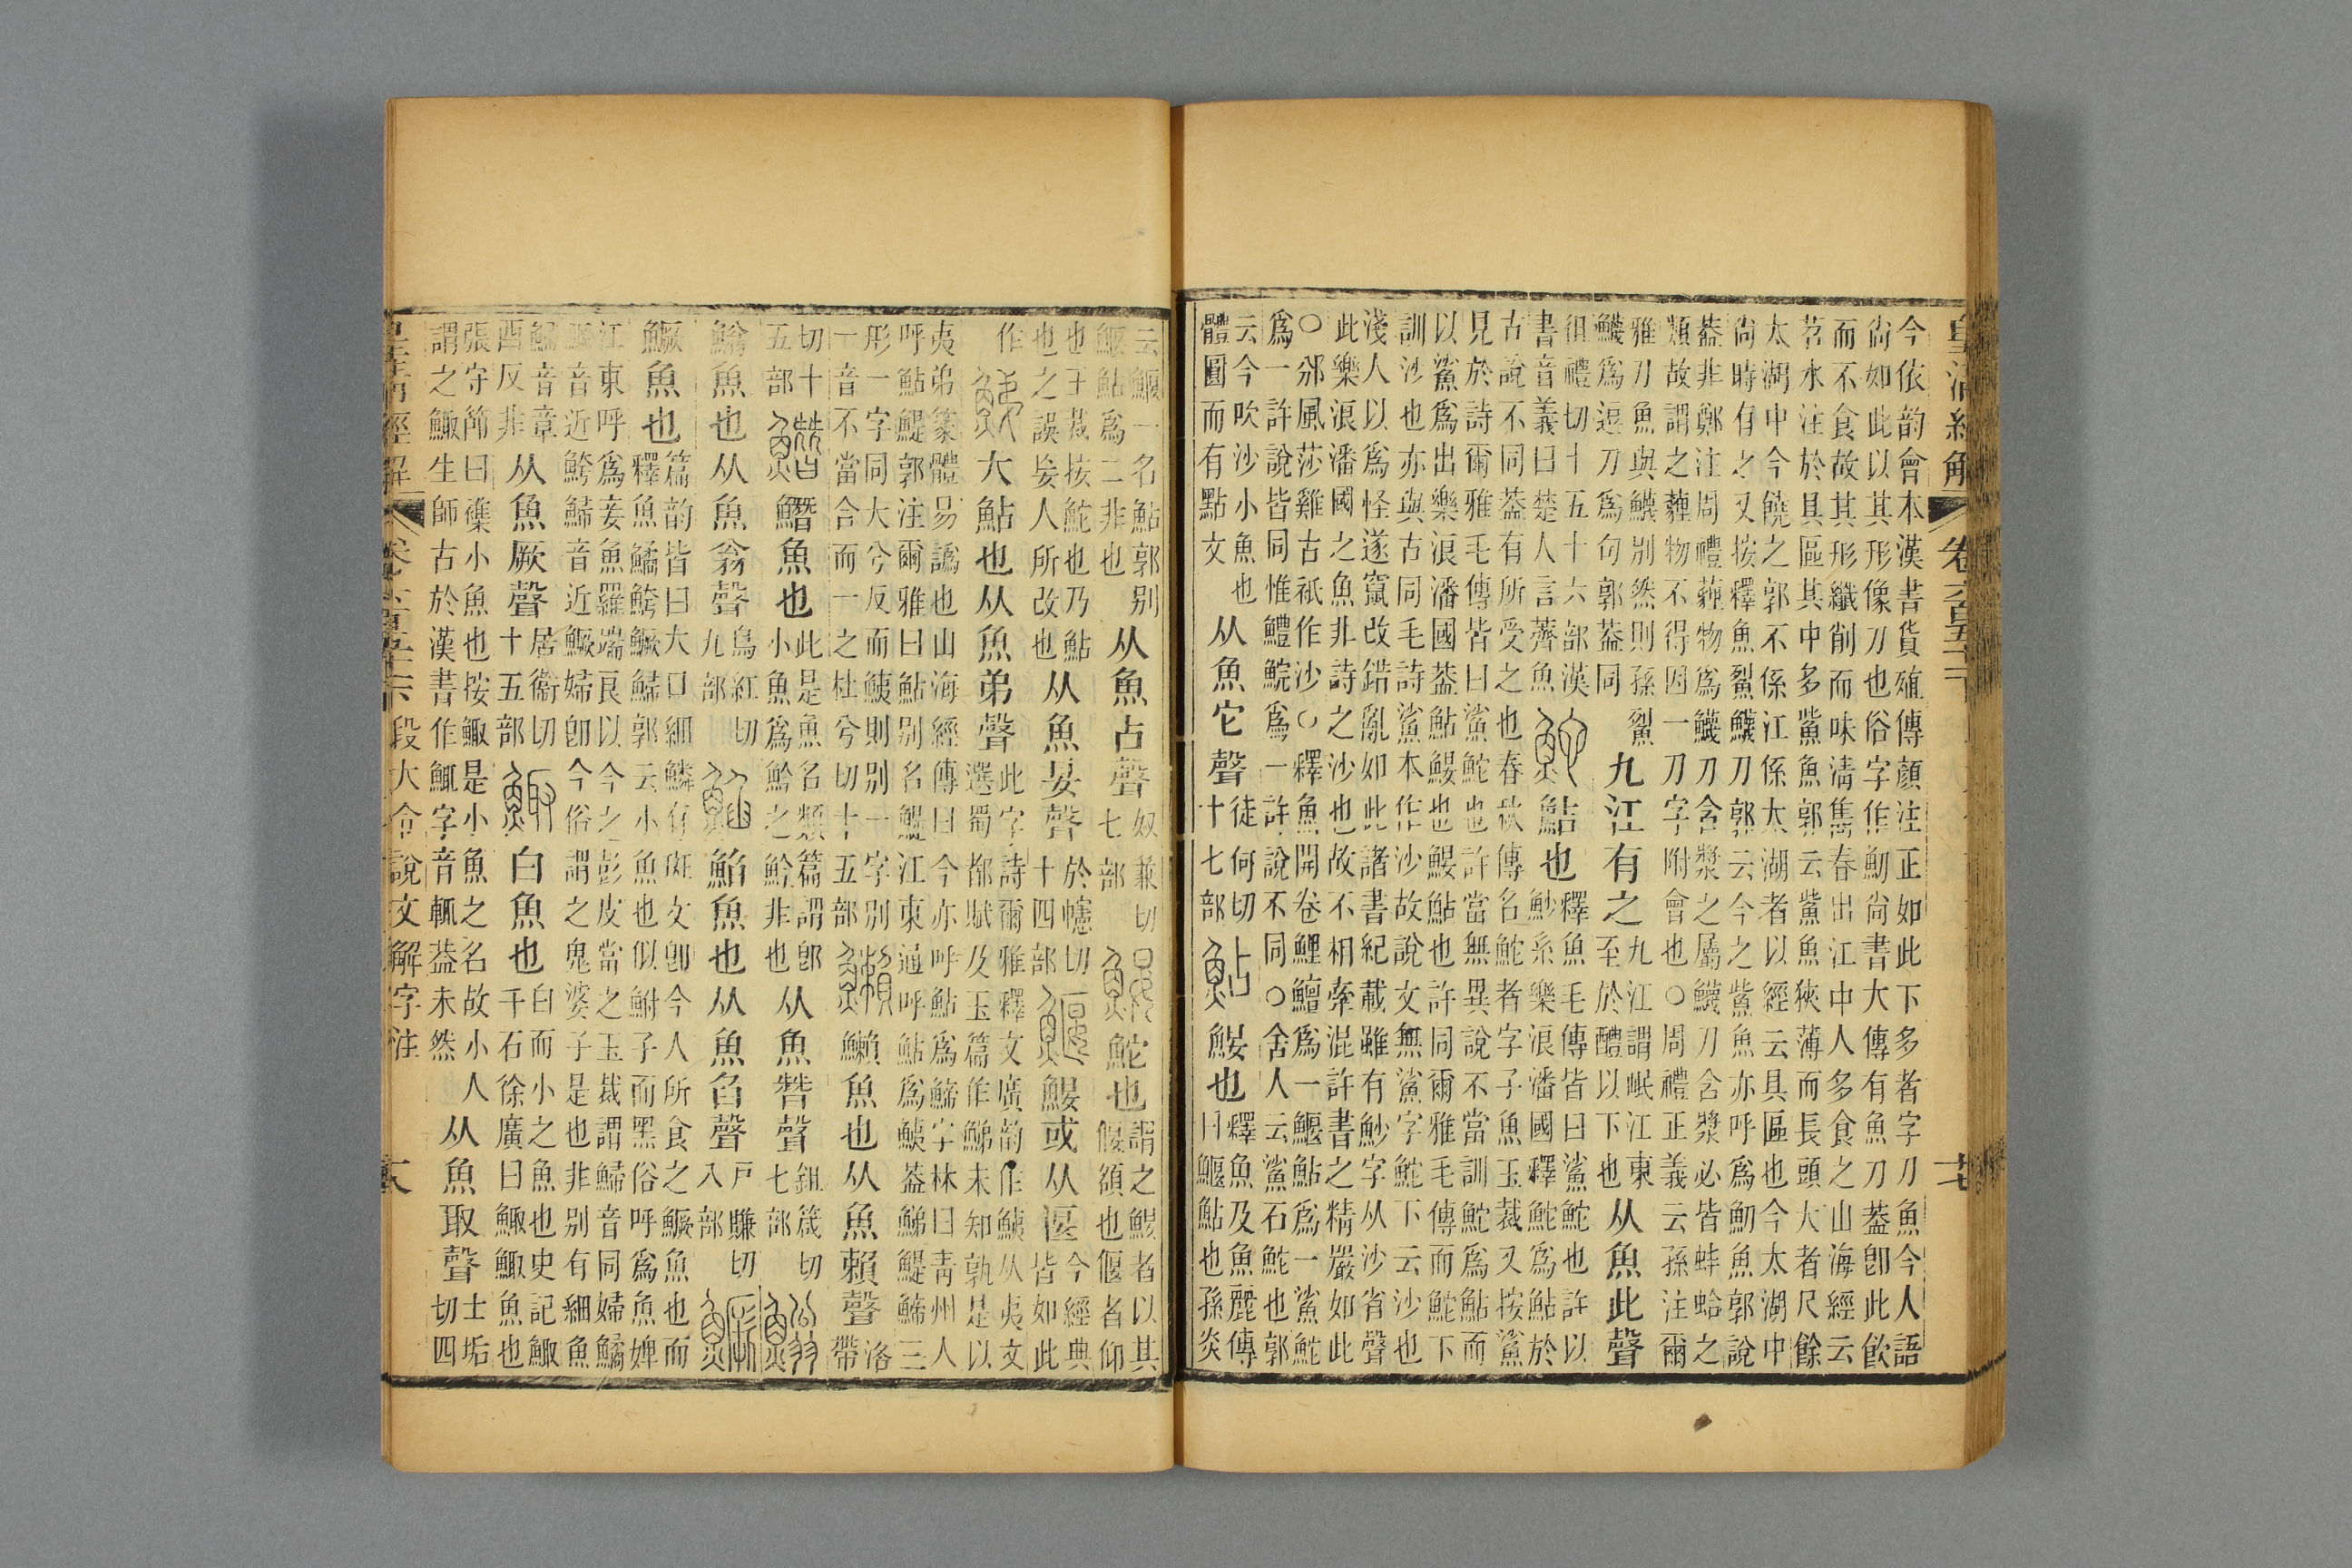 皇清經解 卷六百五十一 十七
今依韵會本漢書貨殖傳顏注正如此下多者字刀魚今人語
尙如此以其形像刀也俗字作魛尙書大傳有魚刀葢卽此飮
而不食故其形纖削而味淸雋春出江中人多食之山海經云
苕水注於具區其中多鮆魚郭云鮆魚狹薄而長頭大者尺餘
太湖中今饒之郭不係江係太湖者以經云具區也今太湖中
尙時有之又按釋魚鮤鱴刀郭云今之鮆魚亦呼爲魛魚郭說
葢非鄭注周禮薶物爲鱴刀含漿之屬鱴刀含漿必皆蚌蛤之
類故謂之薶物不得因一刀字附會也○周禮正義云孫注爾
雅刀魚與鱴别然則孫鮤
鱴爲逗刀爲句郭葢同
九江有之
九江謂岷江江東
至於醴以下也
从魚此聲
徂禮切十五十六部漢
書音義曰楚人言薺魚
鮀 鮎也
釋魚毛傳皆曰鯊鮀也許以
魦系樂浪潘國釋鮀爲鮎於
古說不同葢有所受之也春秋傳名鮀者字子魚玉裁又按鯊
見於詩爾雅毛傳皆曰鯊鮀也許當無異說不當訓鮀爲鮎而
以鯊爲出樂浪潘國葢鮎鰋也鰋鮎也許同爾雅毛傳而鮀下
訓沙也亦與古同毛詩鯊本作沙故說文無鯊字鮀下云沙也
淺人以爲怪遂竄改錯亂如此諸書紀載雖有魦字从沙省聲
此樂浪潘國之魚非詩之沙也故不相牽混許書之精嚴如此
○邠風莎雞古祇作沙○釋魚開卷鯉鱣爲一鰋鮎爲一鯊鮀
爲一許說皆同惟鱧鯇爲一許說不同○舍人云鯊石鮀也郭
云今吹沙小魚也
體圓而有點文
从魚它聲
徒何切
十七部
鮎 鰋也
釋魚及魚麗傳
曰鰋鮎也孫炎
云鰋一名鮎郭别
鰋鮎爲二非也
从魚占聲
奴兼切
七部
鮀也
謂之鰋者以其
偃頟也偃者仰
也玉裁按鮀也乃鮎
也之誤妄人所改也
从魚妟聲
於幰切
十四部
鰋 鰋或从匽
今經典
皆如此
作
鮷 大鮎也从魚弟聲
此字詩爾雅釋文廣韵作鮧从夷文
選蜀都賦及玉篇作鮷未知孰是以
夷弟篆體易譌也山海經傳曰今亦呼鮎爲鮷字林曰靑州人
呼鮎鯷郭注爾雅曰鮎别名鯷江東通呼鮎爲鮧葢鮷鯷鮷三
形一字同大兮反而鮧則别一字别
一音不當合而一之杜兮切十五部
魚也从魚賴聲
洛
帶
切十
五部
䲋魚也
此是魚名類篇謂卽
小魚爲魿之魿非也
从魚朁聲
鉏箴切
七部
䱵魚也从魚翁聲
烏紅切
九部
䱤魚也从魚臽聲
戶賺切
八部
鱖魚也
篇韵皆曰大口細鱗有斑文卽今人所食之鱖魚也而
釋魚鱊鮬鱖鯞郭云小魚也似鮒子而黑俗呼爲魚婢
江東呼爲妾魚羅端良以今之彭皮當之玉裁謂鯞音同婦鱊
鱖音近鮬鯞音近鱖婦卽今俗謂之鬼婆子是也非别有細魚
鯞音章
酉反非
从魚厥聲
居衞切
十五部
鯫 白魚也
白而小之魚也史記鯫
千石徐廣曰鯫鯫魚也
張守節曰雜小魚也按鯫是小魚之名故小人
謂之鯫生師古於漢書作鯫字音輒葢未然
从魚取聲
士垢
切四
皇清經解 卷六百五十一 段大令說文解字注 十八